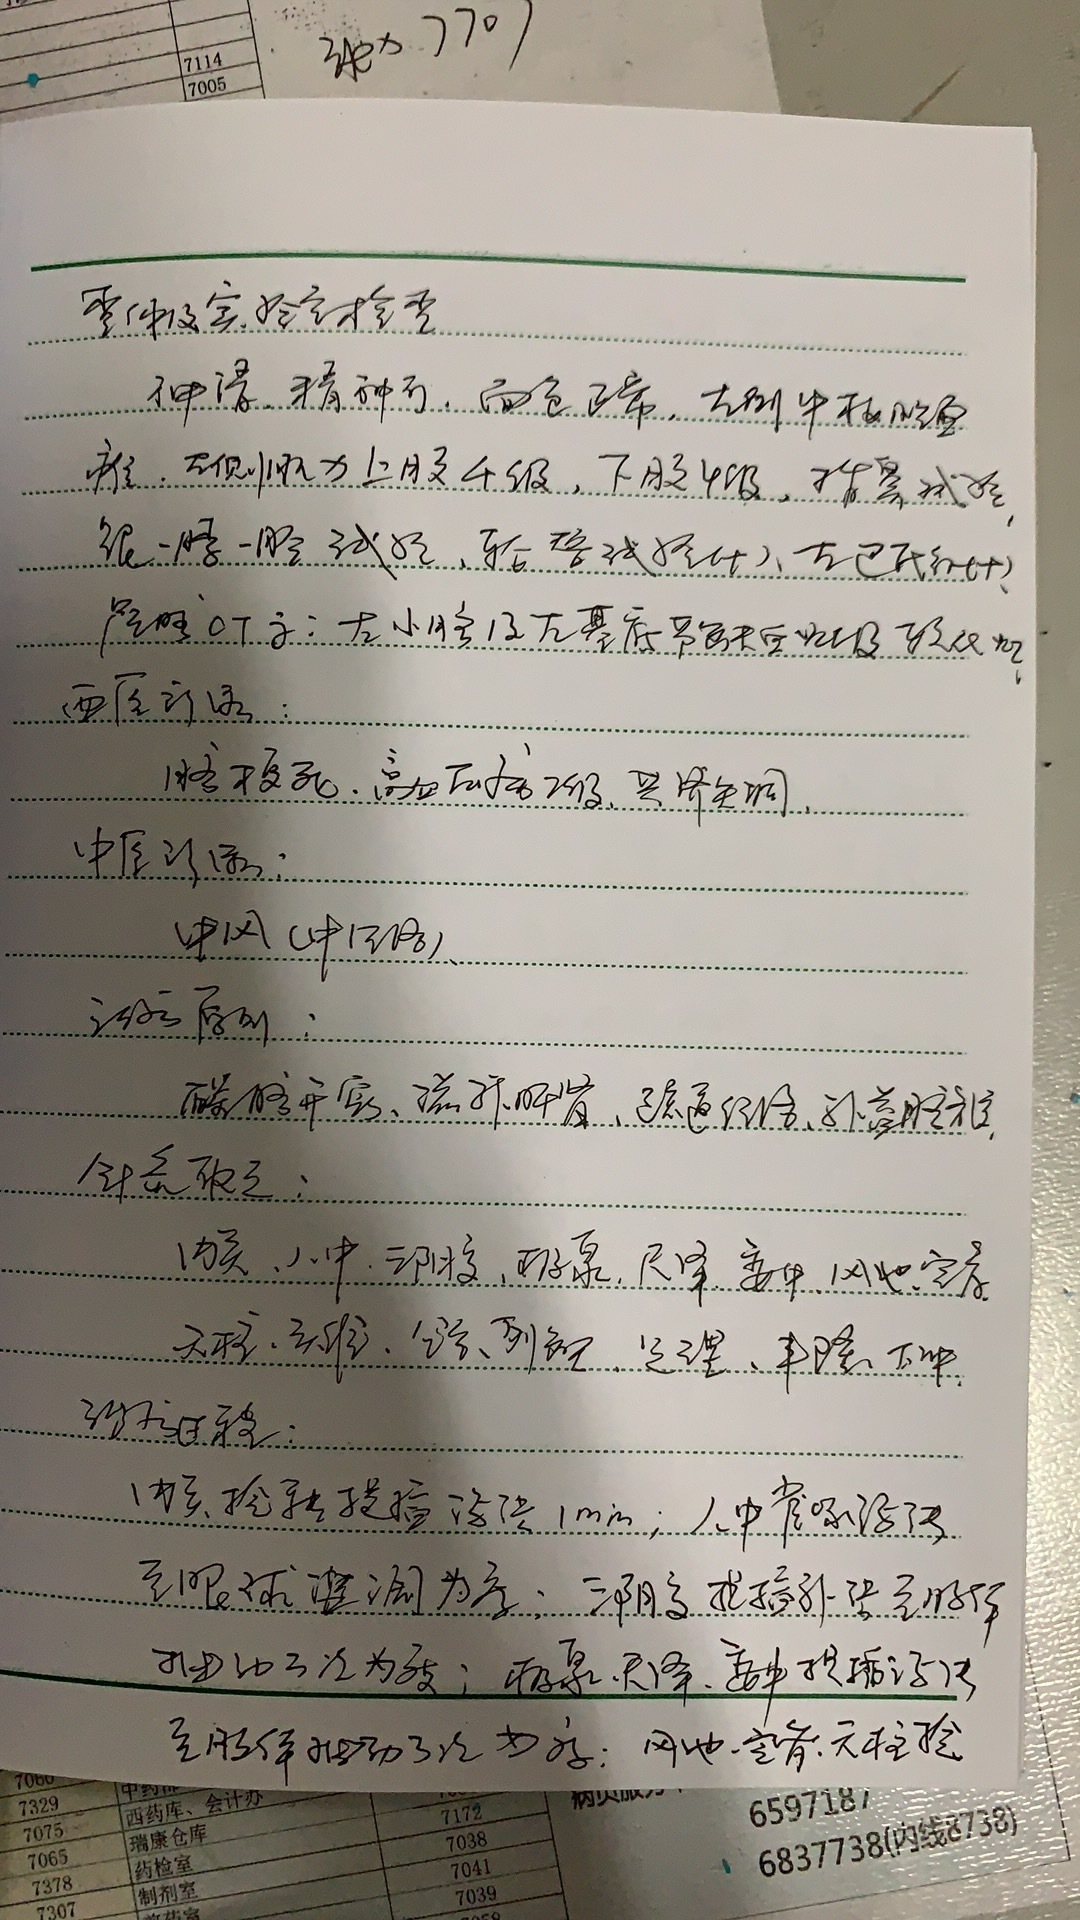 7114
7005
7707
查体及实验室检查
神清、精神可、面色正常、左侧中枢性面
瘫、左侧肌力上肢4级，下肢4级，指鼻试验、
跟-膝-胫试验、轮替试验(+)、左巴氏征(+)
头颅CT示：左小脑及左基底节
西医诊断：
脑梗死、高血压病2级、共济失调
中医诊断：
中风（中经络）
治疗原则：
醒脑开窍、滋补肝肾、疏通经络、补益脑髓
针灸取穴：
内关、人中、三阴交、极泉、尺泽、委中、风池、完骨、
天柱、合谷、列缺、丰隆、太冲
治疗过程：
内关、捻转提插泻法1min；人中雀啄泻法
至眼球湿润为度；三阴交提插补法至肢体
抽动三次为度；极泉、尺泽、委中提插泻法
至肢体抽动三次为度；风池、完骨、天柱捻
7329 西药库、会计办 7172
7075 瑞康仓库 7038
7065 药检室 7041
7378 制剂室 7039
7307
6597187
6837738(内线8738)